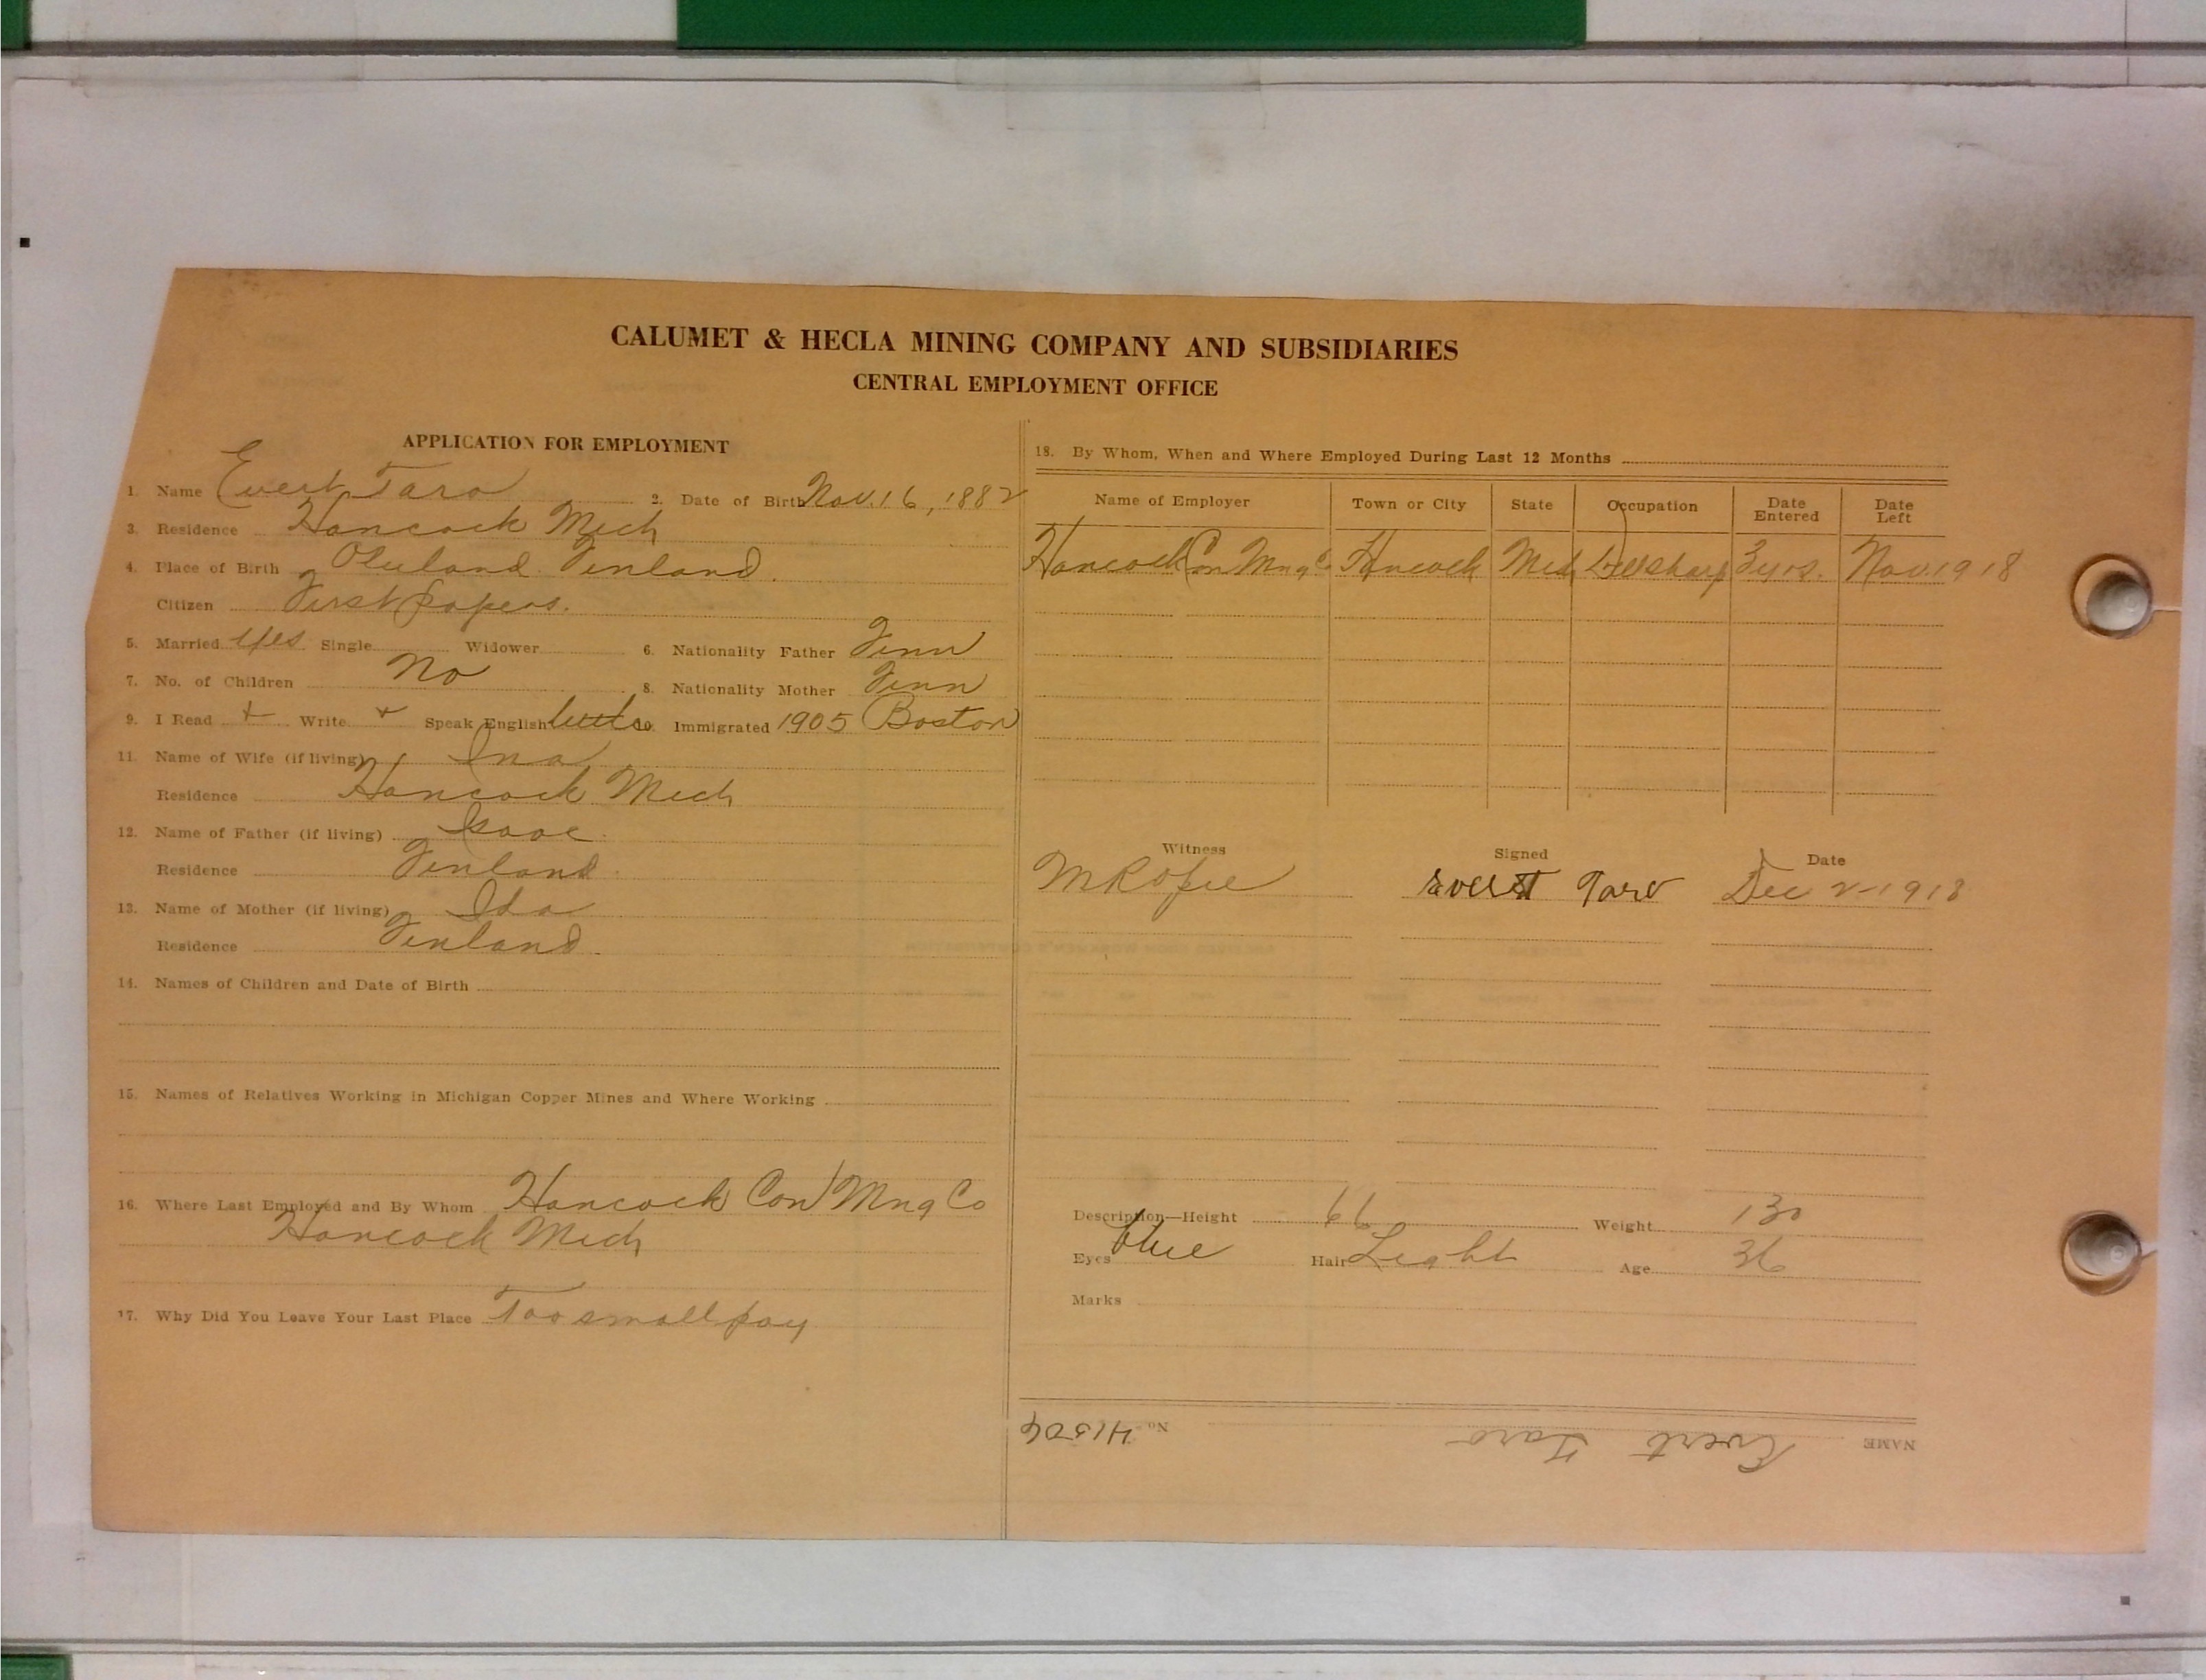 CALUMET & HECLA MINING COMPANY AND SUBSIDIARIES
CENTRAL EMPLOYMENT OFFICE
APPLICATION FOR EMPLOYMENT
1. Name Evert Taro 2. Date of Birth Nov. 16, 1882
3. Residence Hancock Mich
4. Place of Birth Oluland Finland.
Citizen First papers.
5. Married yes Single Widower 6. Nationality Father Finn
7. No. of Children No 8. Nationality Mother Finn
9. I Read + Write + Speak English little 10. Immigrated 1905 Boston
11. Name of Wife (if living) Ina
Residence Hancock Mich
12. Name of Father (if living) Isaac
Residence Finland
13. Name of Mother (if living) Ida
Residence Finland
14. Names of Children and Date of Birth
15. Names of Relatives Working in Michigan Copper Mines and Where Working
16. Where Last Employed and By Whom Hancock Con Mng Co
Hancock Mich
17. Why Did You Leave Your Last Place Too small pay
18. By Whom, When and Where Employed During Last 12 Months
Name of Employer Town or City State Occupation Date Entered Date Left
Hancock Con Mng Co Hancock Mich Drillsharp 3 yrs. Nov. 1918
Witness Signed Date
Evert Taro Dec 2-1918
Description—Height 66 Weight 130
Eyes blue Hair Light Age 36
Marks
NAME Evert Taro No. 41506